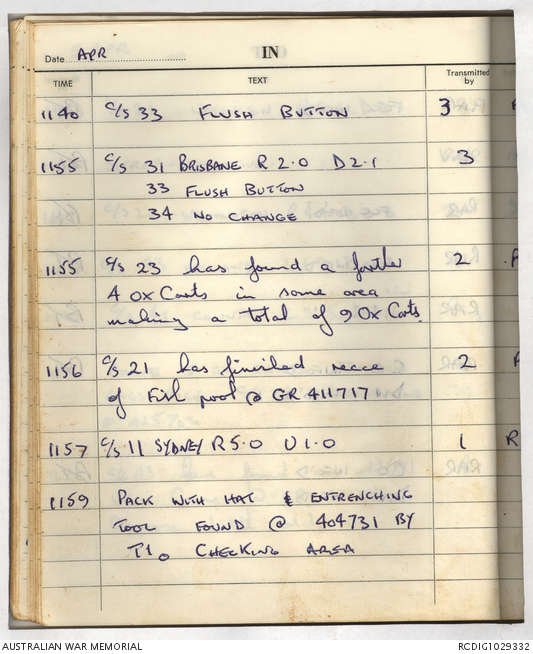 Date APR IN
TIME TEXT Transmitted by
1140 C/S 33 FLUSH BUTTON 3
1155 C/S 31 BRISBANE R 2.0 D 2.1 3
33 FLUSH BUTTON
34 NO CHANGE
1155 C/S 23 has found a further 2
4 OX Carts in same area
making a total of 9 OX Carts
1156 C/S 21 has finished recce 2
of Fish pool @ GR 411717
1157 C/S 11 SYDNEY R 5.0 U 1.0 1 R
1159 PACK WITH HAT & ENTRENCHING
TOOL FOUND @ 404731 BY
CHECKING AREA
AUSTRALIAN WAR MEMORIAL RCDIG1029332